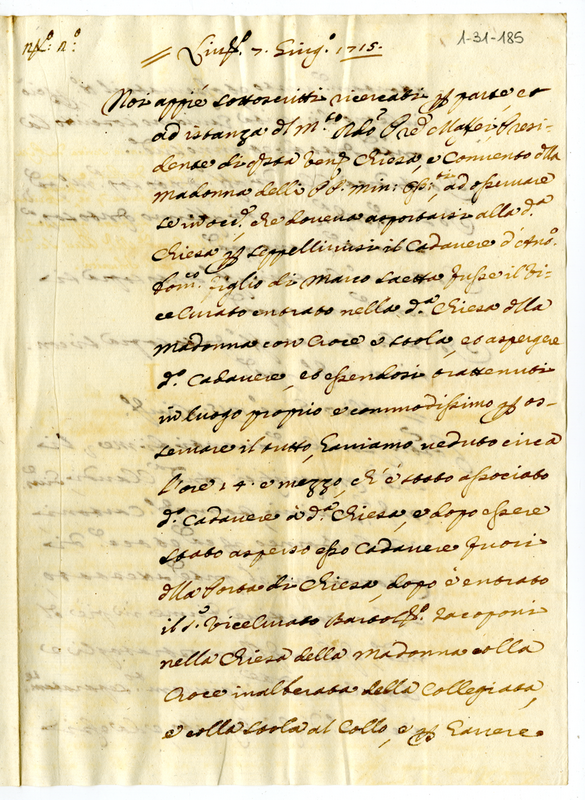 1-31-185
7. Giug.º 1715.
Noi appiè sottoscritti ricercati p parte et
ad istanza dl m.to Rdo Pre Mattei Presi-
dente di qsta Ven. Chiesa, e Convento dlla
Madonna delli P.P. Min: Oss:ti, ad osservare
se in occ.e che doveva asportarsi alla d.a
Chiesa p seppellirvisi il Cadavere d'Ant.º
figlio di Marco Saetta fusse il Vi-
ce Curato entrato nella d.a Chiesa dlla
Madonna con Croce e stola, et aspergere
d.º Cadavere, et essendosi trattenuti
in luogo proprio e commodissimo p os-
servare il tutto, haviamo veduto circa
l'ore 14. e mezzo, ch'è stato associato
d.º Cadavere à d.a Chiesa, e dopo essere
stato asperso esso Cadavere fuori
dlla Porta di Chiesa, dopo è entrato
il S.r Vice Curato Iacoponi
nella Chiesa della Madonna colla
Croce inalberata della Collegiata,
e colla stola al Collo, e p havere